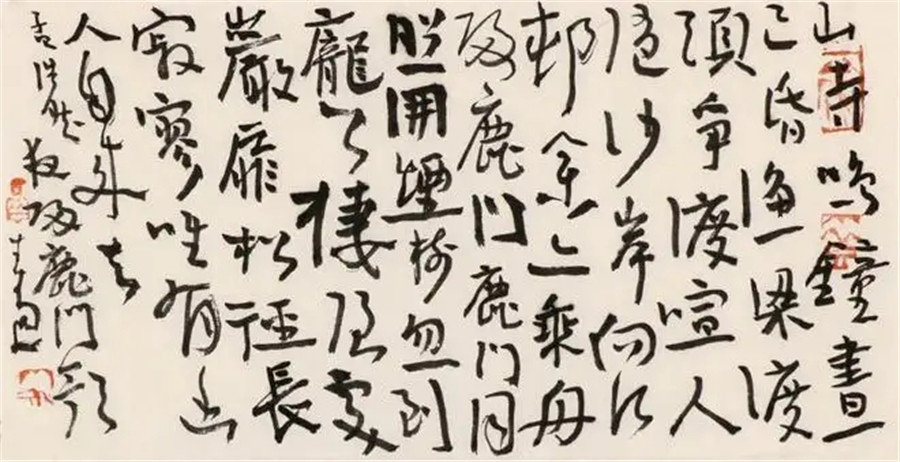 山寺鳴鐘晝
已昏漁梁渡
頭爭渡喧人
隨沙岸向江
邨余亦乘舟
歸鹿門鹿門月
照開煙樹忽到
龐公棲隱處
巖扉松徑長
寂寥唯有幽
人自來去
孟浩然夜歸鹿門歌